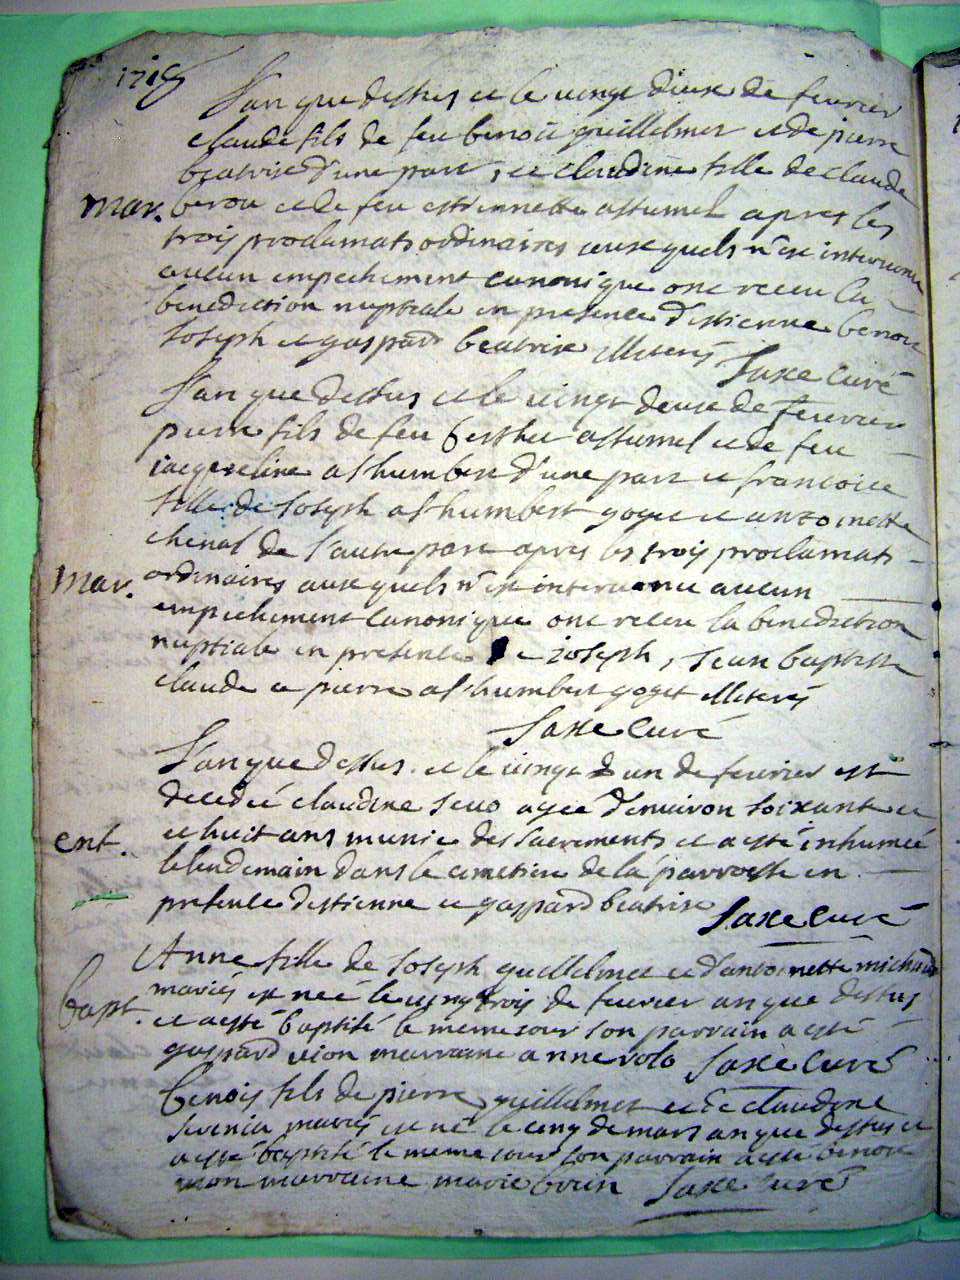 L'an que dessus et le vingt deux de fevrier
Claude fils de feu benoit guillelmet et de pierre
beatrise d'une part, et claudine fille de claude
mar. berou et de feu estiennette assumel apres les
trois proclamats ordinaires auxquels n'est intervenu
aucun empechement canonique ont receu la
benediction nuptiale en presence d'estienne berou
Joseph et gaspard beatrise illiterés
Saxe curé
L'an que dessus et le vingt deuxe de fevrier
pierre fils de feu berthet assumel et de feu
jacqueline alhumbert d'une part et francoise
fille de Joseph alhumbert goget et antoinette
chenal de l'autre part apres les trois proclamats
mar. ordinaires auxquels n'est intervenu aucun
empechement canonique ont receu la benediction
nuptiale en presence de joseph, Jean baptiste
claude et pierre alhumbert goget illiterés
Saxe curé
L'an que dessus et le vingt et un de fevrier est
decedée claudine agée d'environ soixante et
ent. et huit ans munie des sacrements et a esté inhumée
le lendemain dans le cimetiere de la parroisse en
presence d'estienne et gaspard beatrise
Saxe curé
Anne fille de Joseph guillelmet et d'antoinette michaud
bapt. mariés est née le vingt trois de fevrier an que dessus
et a esté baptisé le meme jour son parrain a esté
gaspard vion marraine anne rolo Saxe curé
benoit fils de pierre guillelmet et de claudine
mariés est né le cinq de mars an que dessus et
a esté baptisé le meme jour son parrain a esté benoit
marraine marie brun Saxe curé